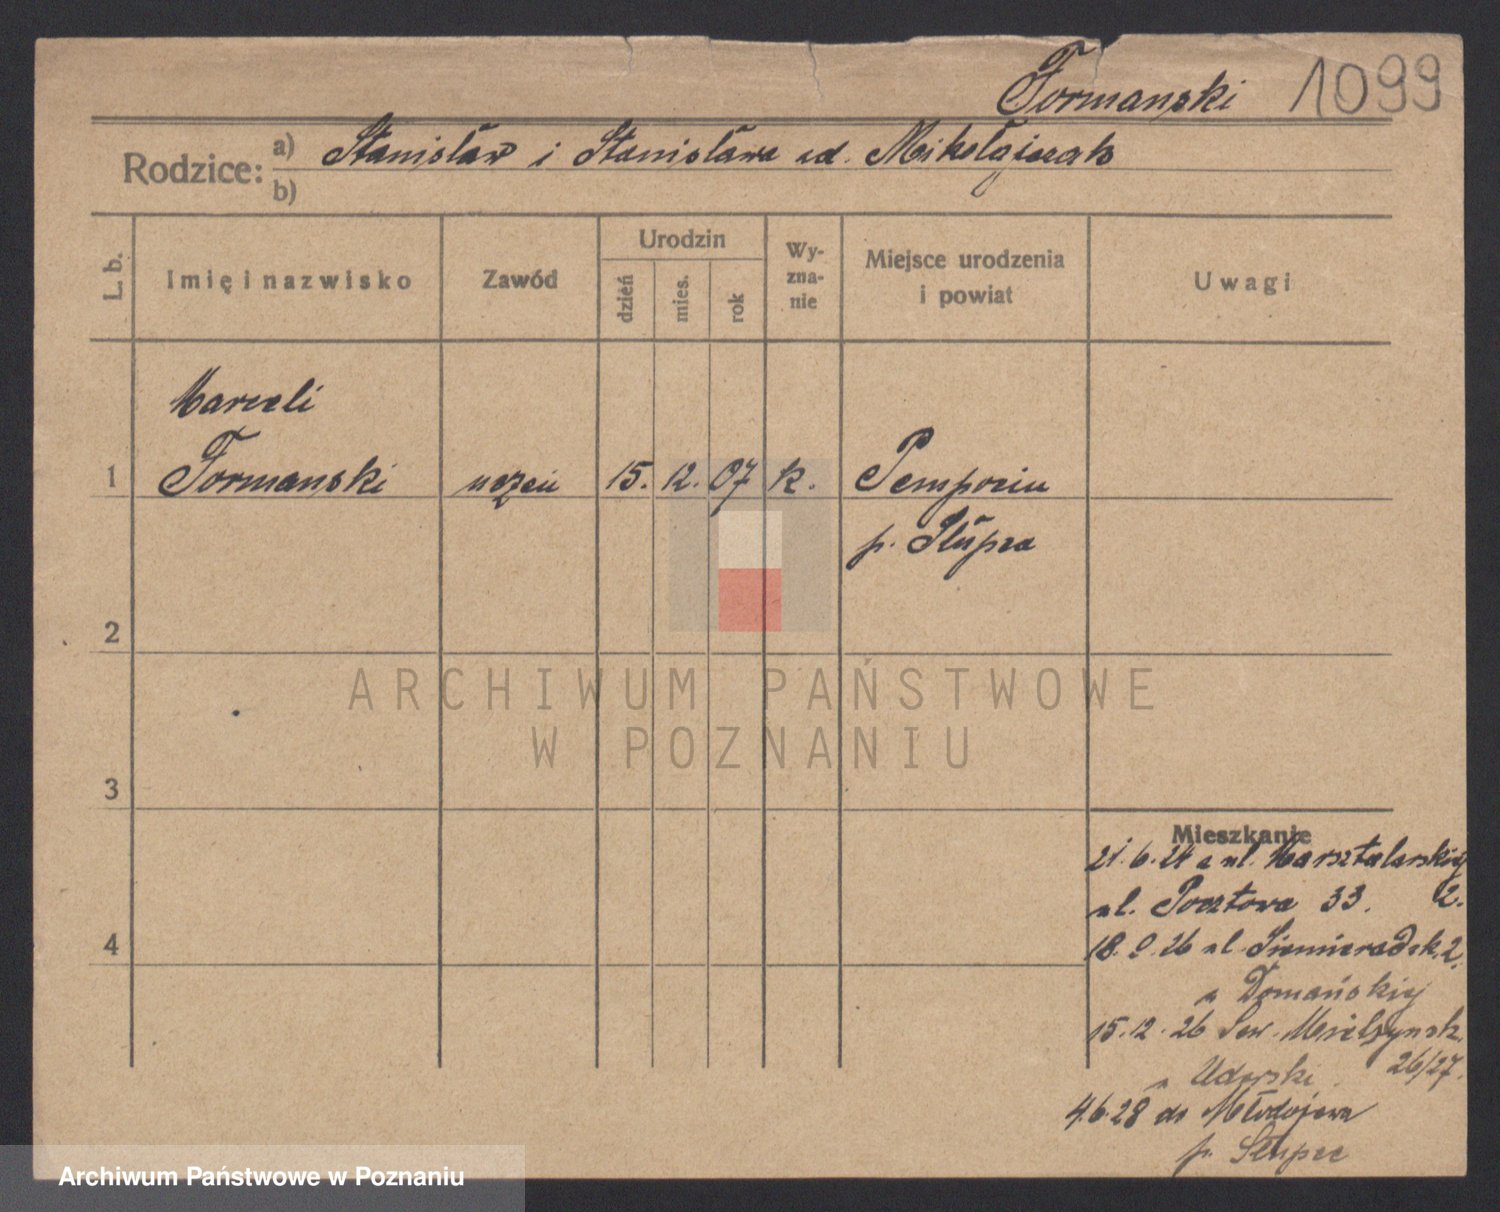 Formanski 1099
Rodzice: a) Stanisław i Stanisława zd. Mikołajczak
b)
L. b. Imię i nazwisko Zawód Urodzin dzień mies. rok Wy-zna-nie Miejsce urodzenia i powiat Uwagi
Marceli
1 Formanski uczeń 15. 12. 07 k. Pempocin
p. Słupca
2
ARCHIWUM PAŃSTWOWE
W POZNANIU
3
Mieszkanie
21.6.24 z ul. Masztalarskiej
ul. Pocztowa 33. 2.
4
18.9.26 ul. Siemieradzk. 2.
u Domańskiej
15.12.26 Sew. Mielżyńsk.
26/27.
u Uderski
4.6.28 do Młodojewa
p. Słupca
Archiwum Państwowe w Poznaniu